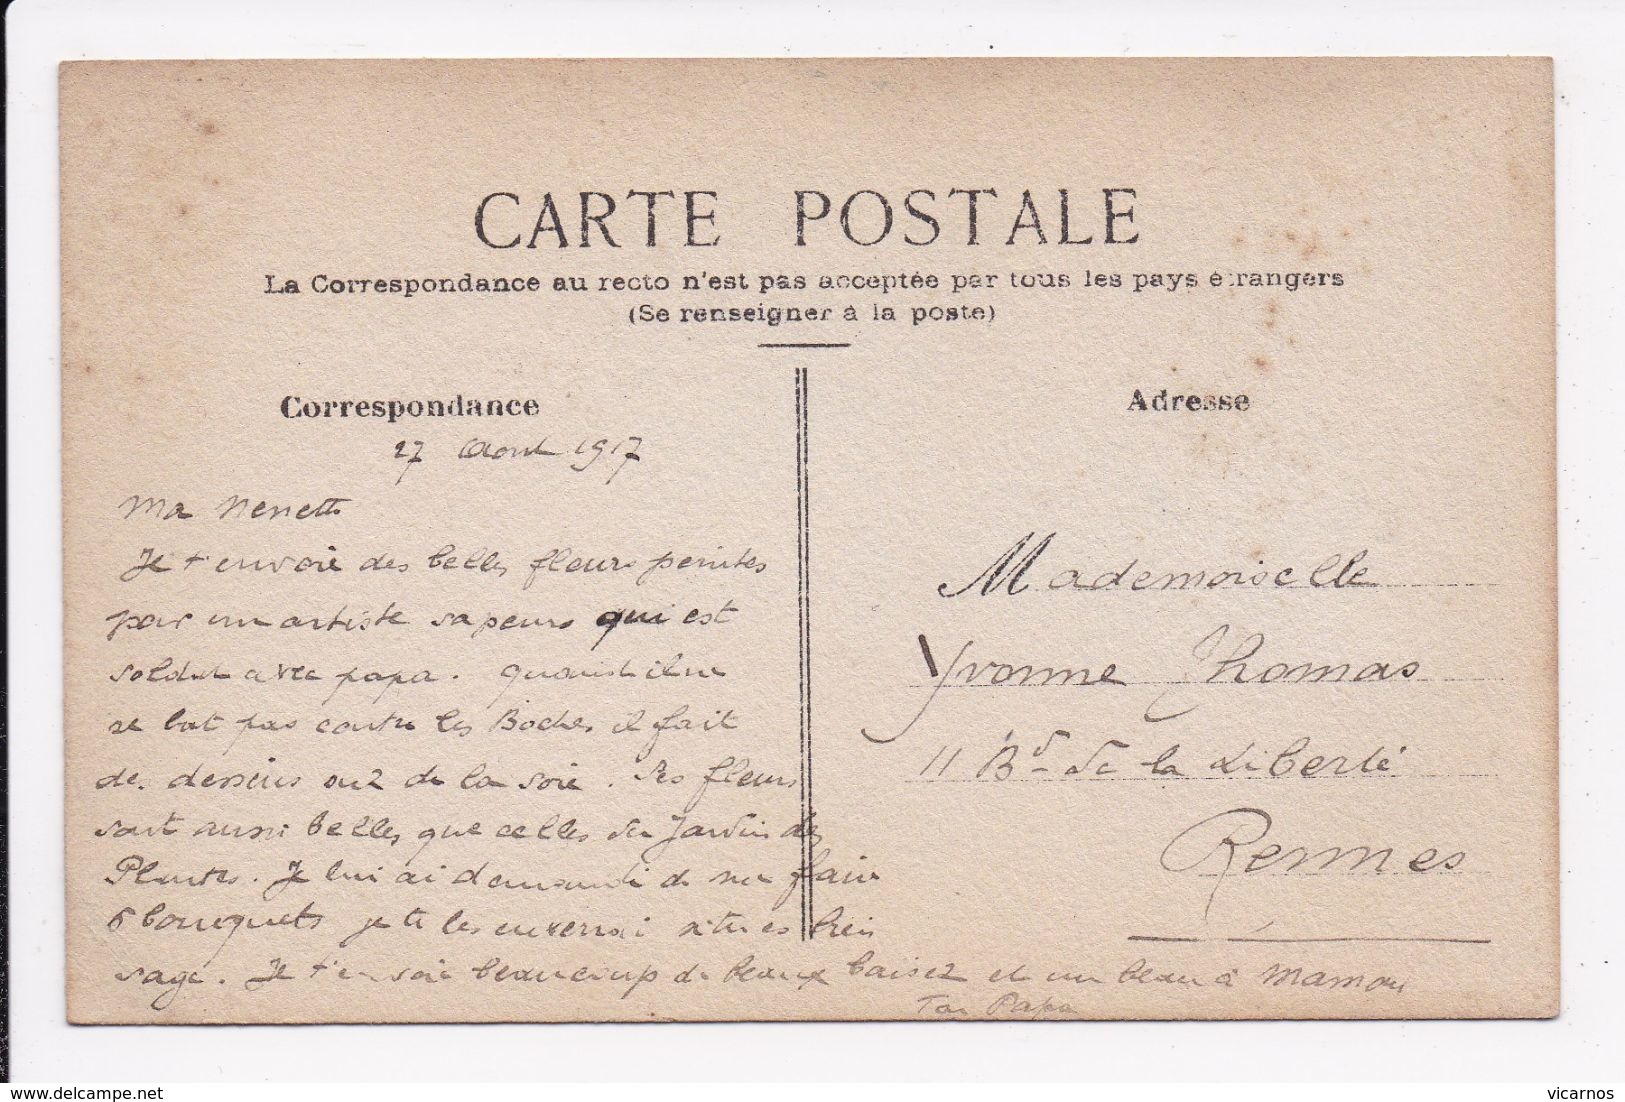 CARTE POSTALE
La Correspondance au recto n'est pas acceptée par tous les pays étrangers
(Se renseigner à la poste)
Correspondance
27 Aout 1917
Ma Nenette
Je t'envoie des belles fleurs peintes
par un artiste sapeur qui est
soldat avec papa. Quand il ne
se bat pas contre les Boches il fait
de dessins sur de la soie. Ses fleurs
sont aussi belles que celles du Jardin des
Plantes. Je lui ai demandé de me faire
6 bouquets je te les enverrai si tu es bien
sage. Je t'envoie beaucoup de beaux baisez et un beau à Maman
Ton Papa
Adresse
Mademoiselle
Yvonne Thomas
11 Bd de la Liberté
Rennes
vicarnos